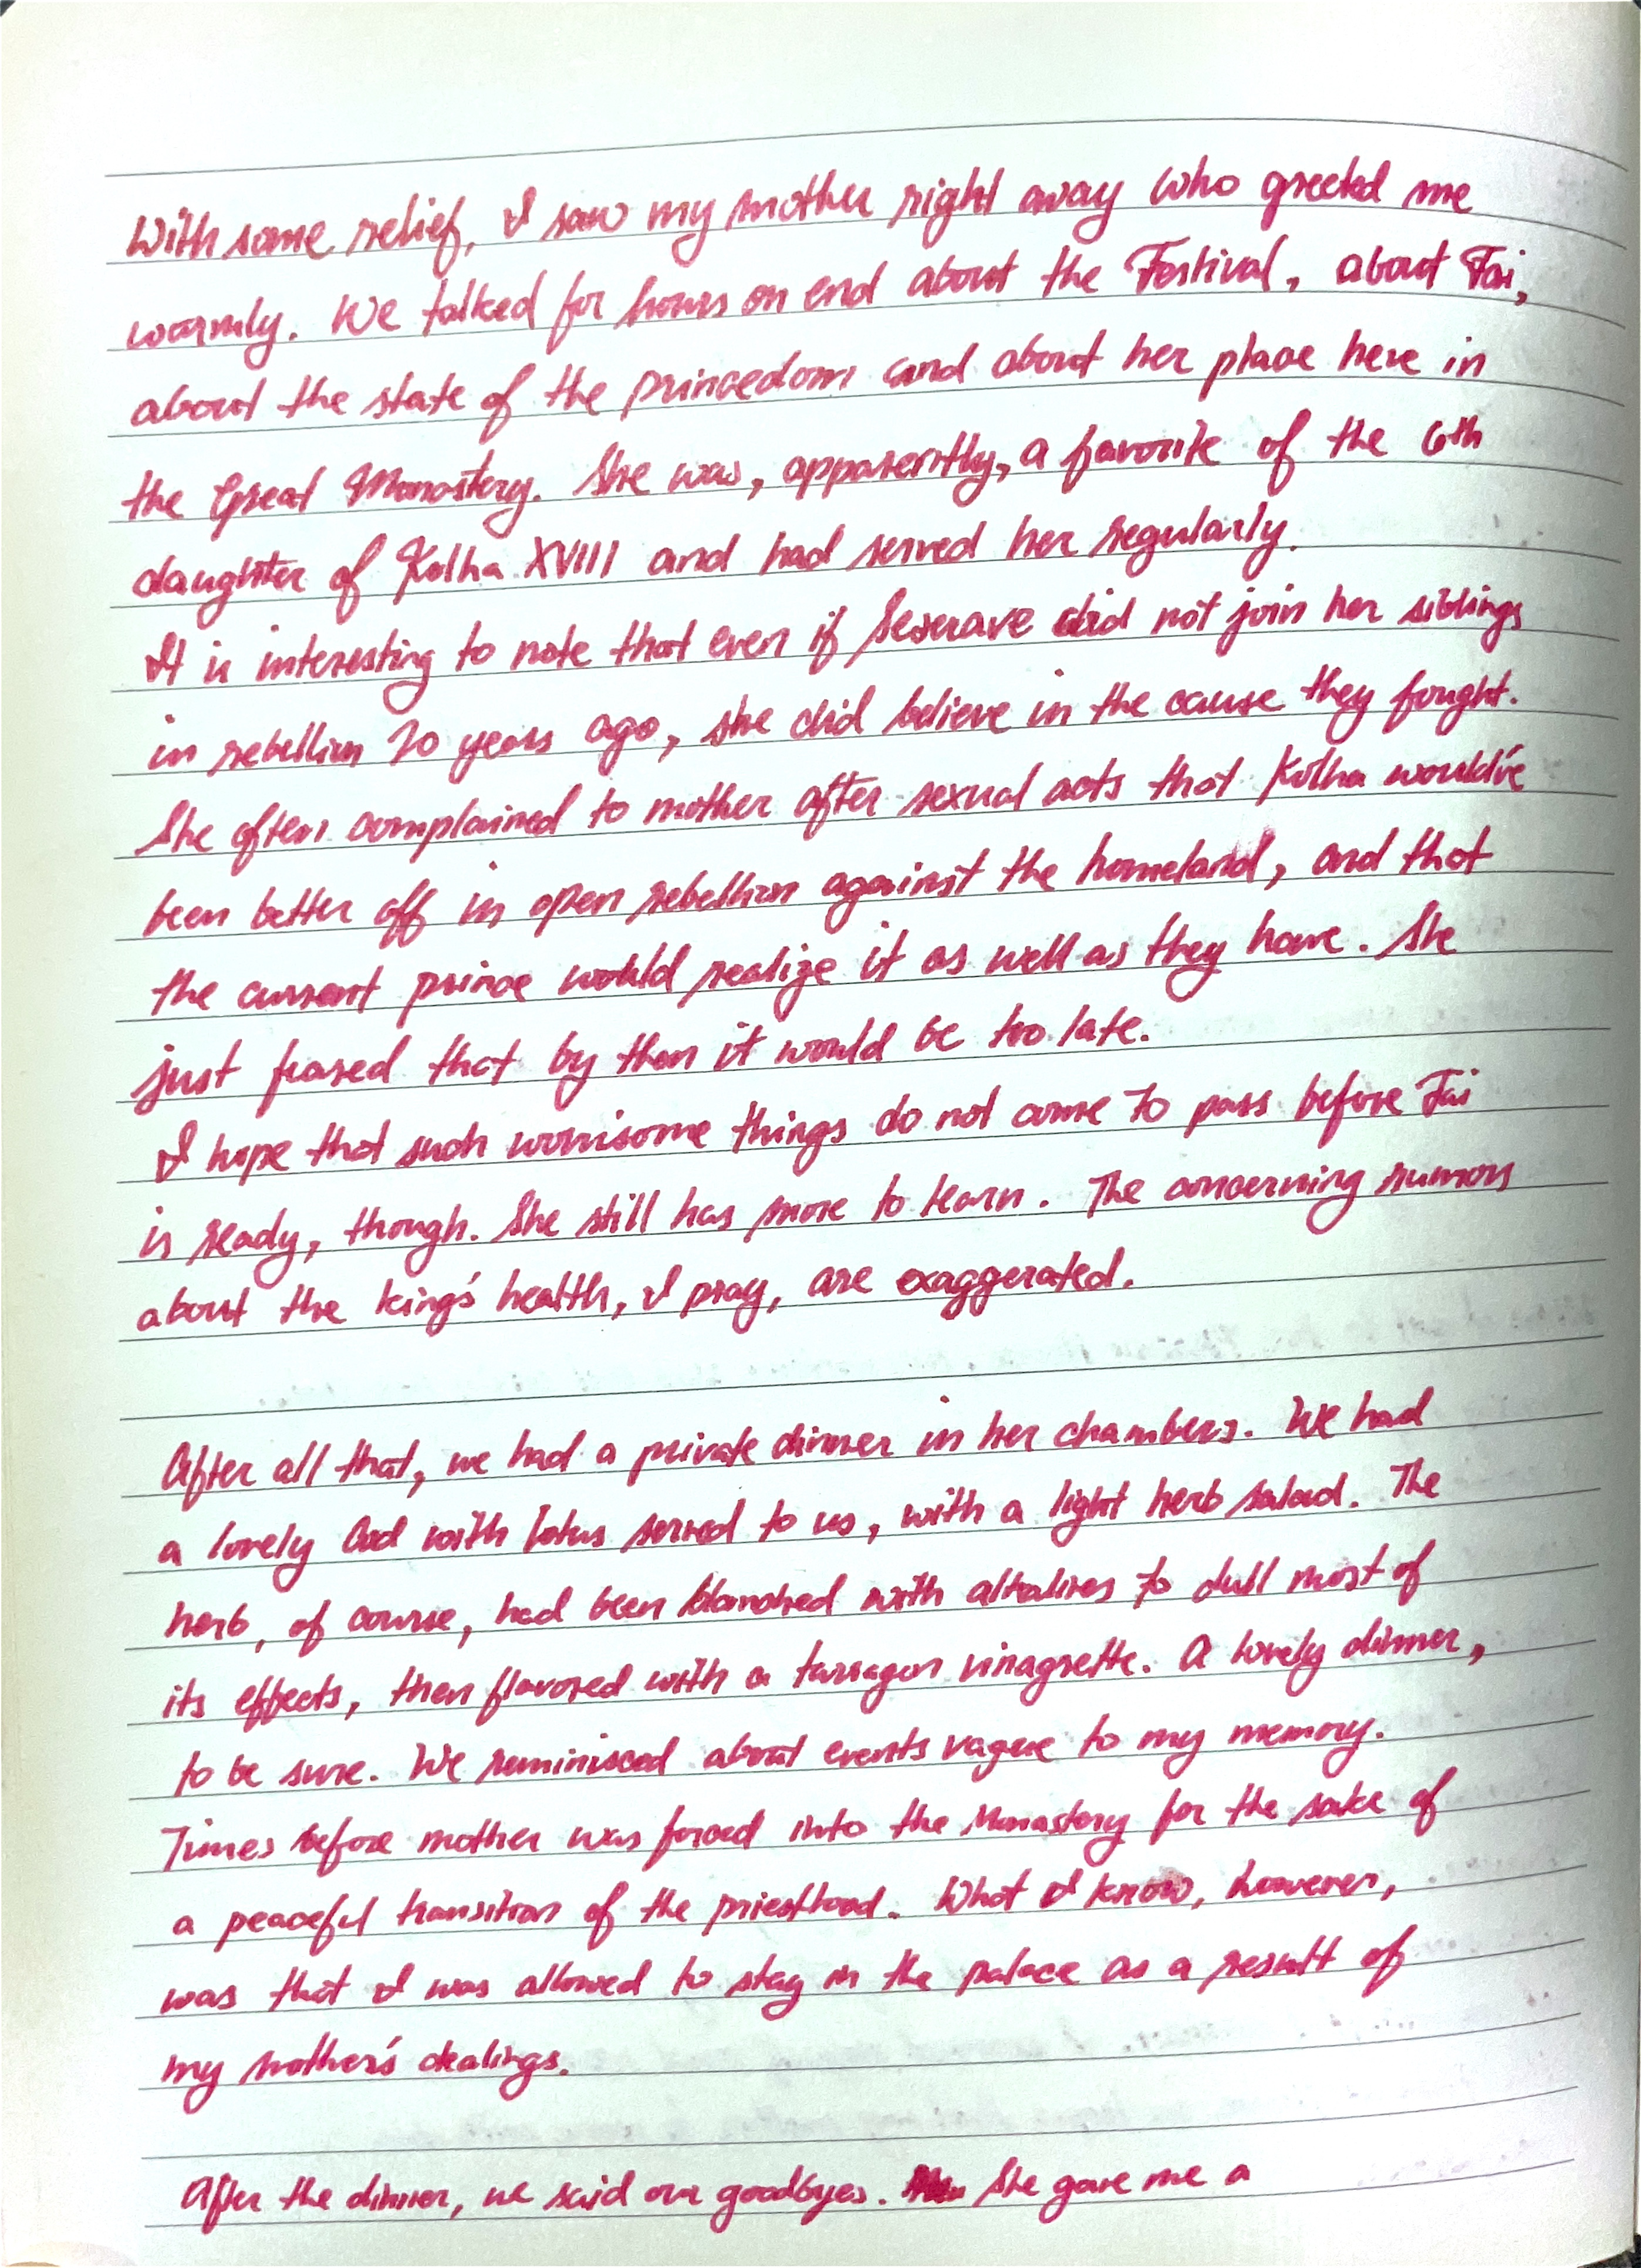 With some relief, I saw my mother right away who greeted me
warmly. We talked for hours on end about the Festival, about Fai,
about the state of the princedom and about her place here in
the Great Monastery. She was, apparently, a favorite of the 6th
daughter of Kolha XVIII and had served her regularly.
It is interesting to note that even if did not join her siblings
in rebellion 20 years ago, she did believe in the cause they fought.
She often complained to mother after sexual acts that Kolha would've
been better off in open rebellion against the homeland, and that
the current prince would realize it as well as they have. She
just feared that by then it would be too late.
I hope that such worrisome things do not come to pass before Fai
is ready, though. She still has more to learn. The concerning rumors
about the king's health, I pray, are exaggerated.
After all that, we had a private dinner in her chambers. We had
a lovely cod with lotus served to us, with a light herb salad. The
herb, of course, had been blanched with to dull most of
its effects, then flavored with a tarragon vinagrette. A lovely dinner,
to be sure. We reminisced about events vague to my memory.
Times before mother was forced into the Monastery for the sake of
a peaceful transition of the priesthood. What I know, however,
was that I was allowed to stay in the palace as a result of
my mother's dealings.
After the dinner, we said our goodbyes. She gave me a